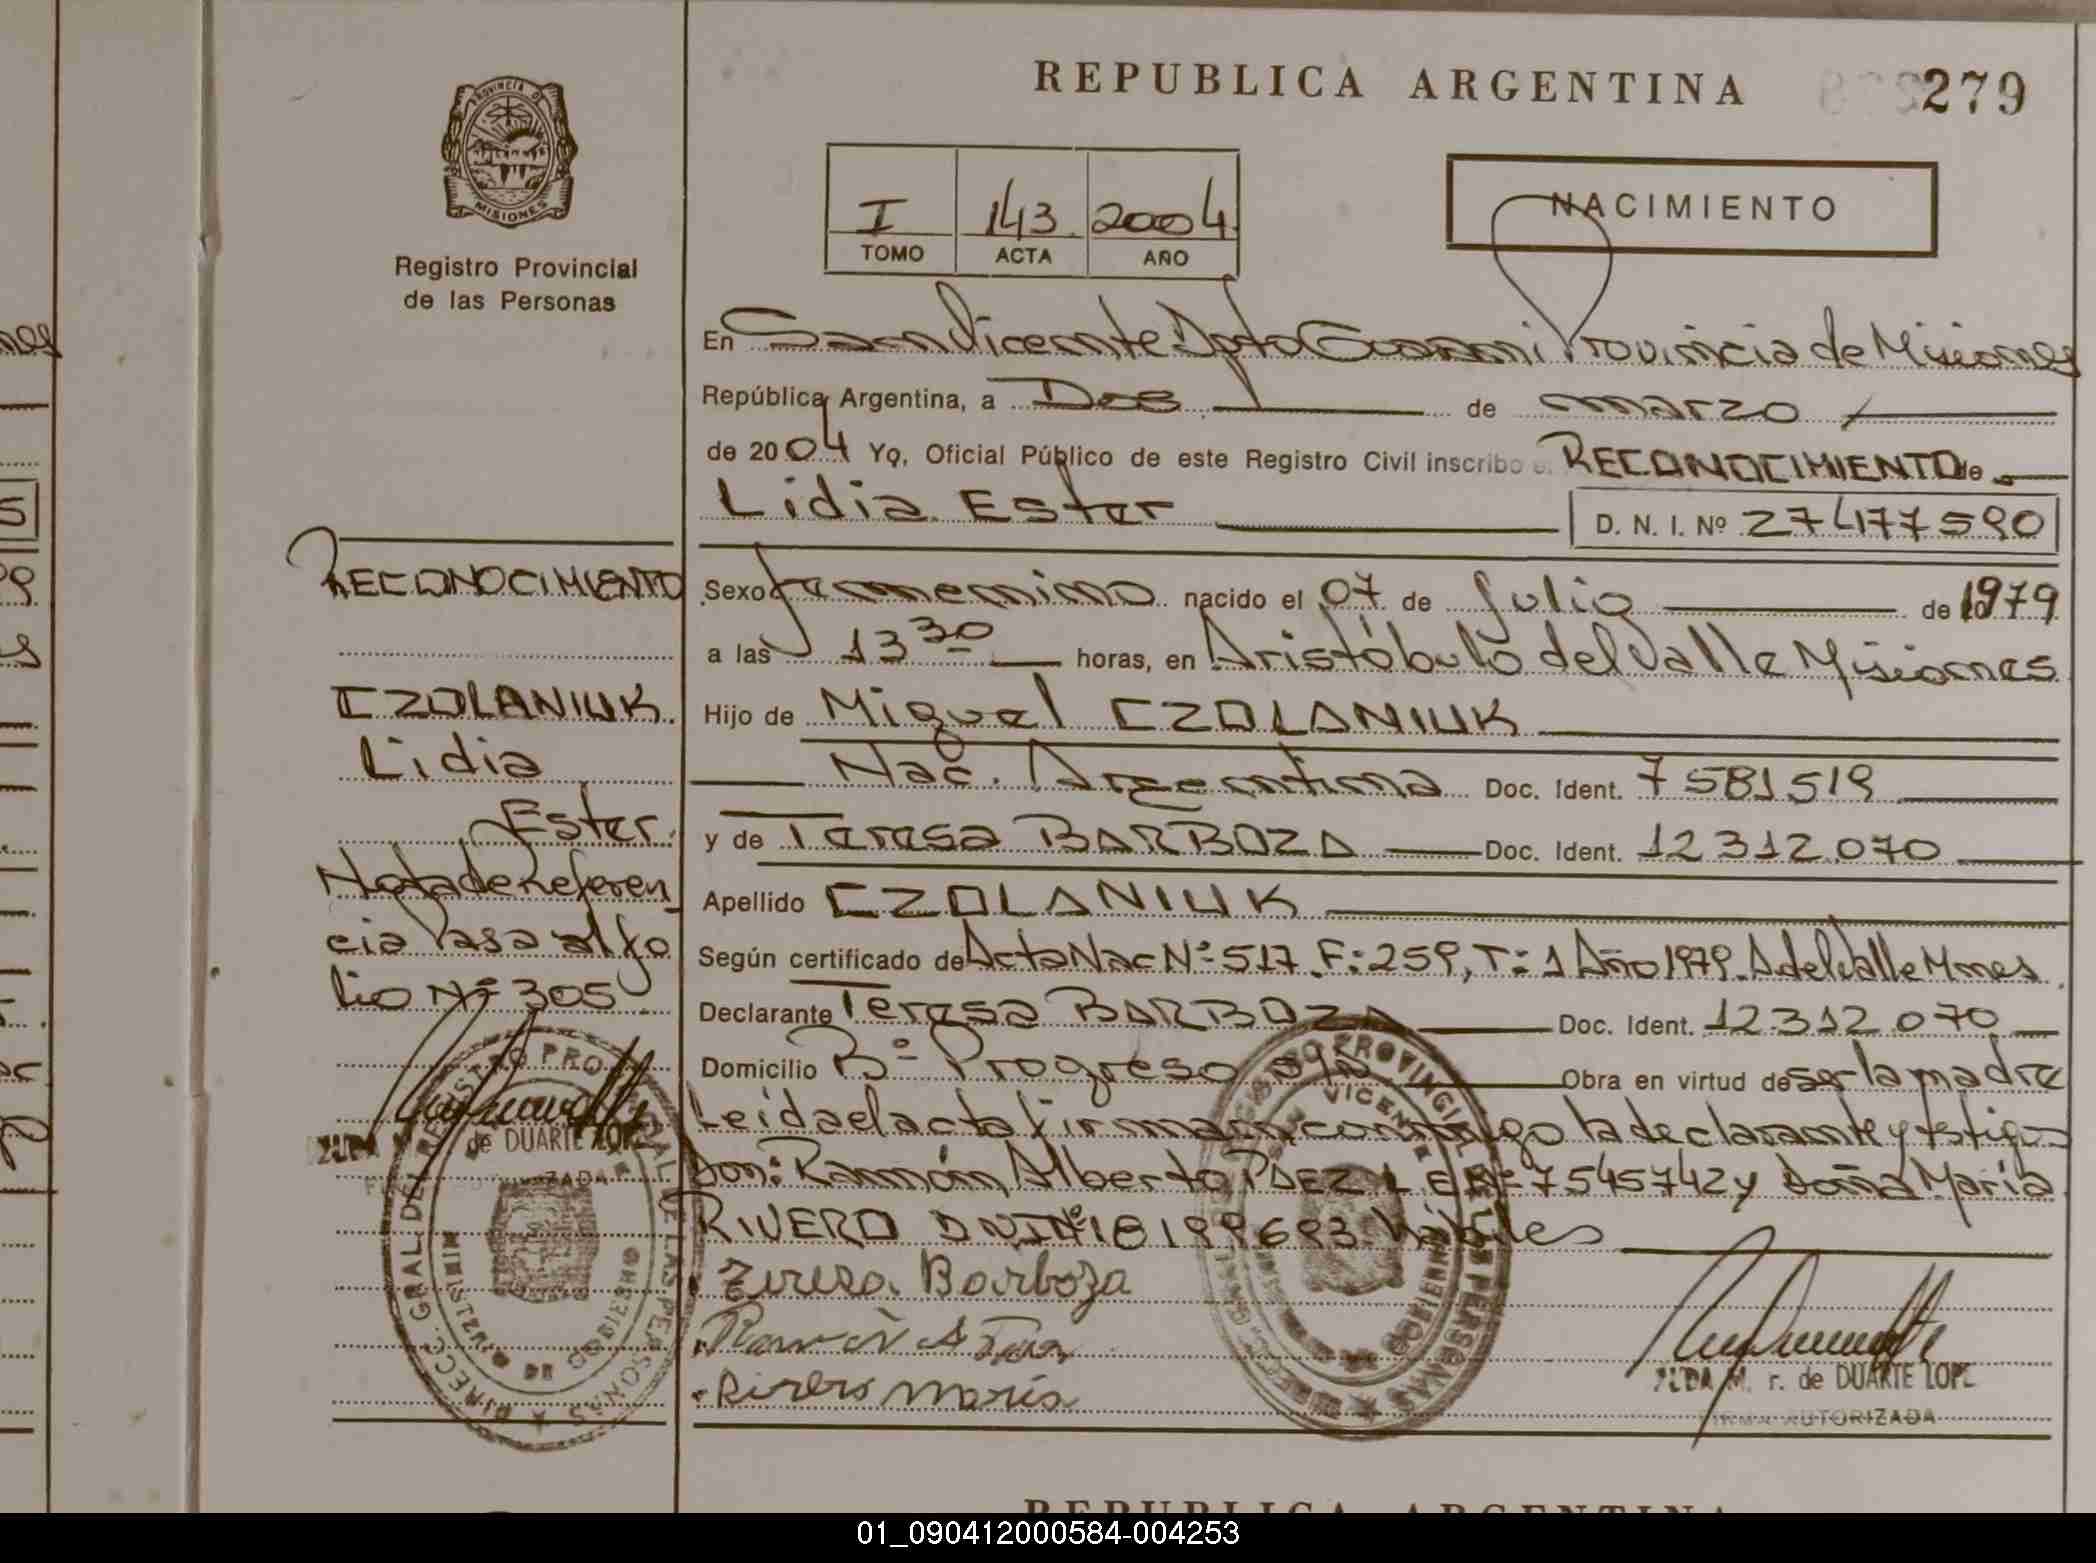 REPUBLICA ARGENTINA
279
PROVINCIA DE MISIONES
Registro Provincial
de las Personas
I 143 2004
TOMO ACTA AÑO
NACIMIENTO
En San Vicente Dpto Guaraní Provincia de Misiones
República Argentina, a Dos de marzo
de 2004 Yo, Oficial Público de este Registro Civil inscribo e. RECONOCIMIENTO de
Lidia Ester D. N. I. Nº 27477590
RECONOCIMIENTO
Sexo femenino nacido el 07 de Julio de 1979
a las 13 30 horas, en Aristóbulo del Valle Misiones
CZOLANIUK
Hijo de Miguel CZOLANIUK
Lidia
Nac. Argentina Doc. Ident. 7581519
Ester
y de Teresa BARBOZA Doc. Ident. 12312070
Nota de Referen
Apellido CZOLANIUK
cia Pasa al fo
Según certificado de Acta Nac Nº 517. F: 259, T: 1 Año 1979. A del Valle Mnes.
lio Nº 305
Declarante Teresa BARBOZA Doc. Ident. 12.312.070
Domicilio Bº Progreso S/N Obra en virtud de ser la madre
Leída el acta firman conmigo la declarante y testigos
Don: Ramón Alberto PAEZ L.E Nº 7545742 y Doña María
RIVERO DNI Nº 18199693 hábiles
Teresa Barboza
Ramon A Paez
Rivero María
de DUARTE LOPE
M. r. de DUARTE LOPE
FIRMA AUTORIZADA
REPUBLICA ARGENTINA
01_090412000584-004253